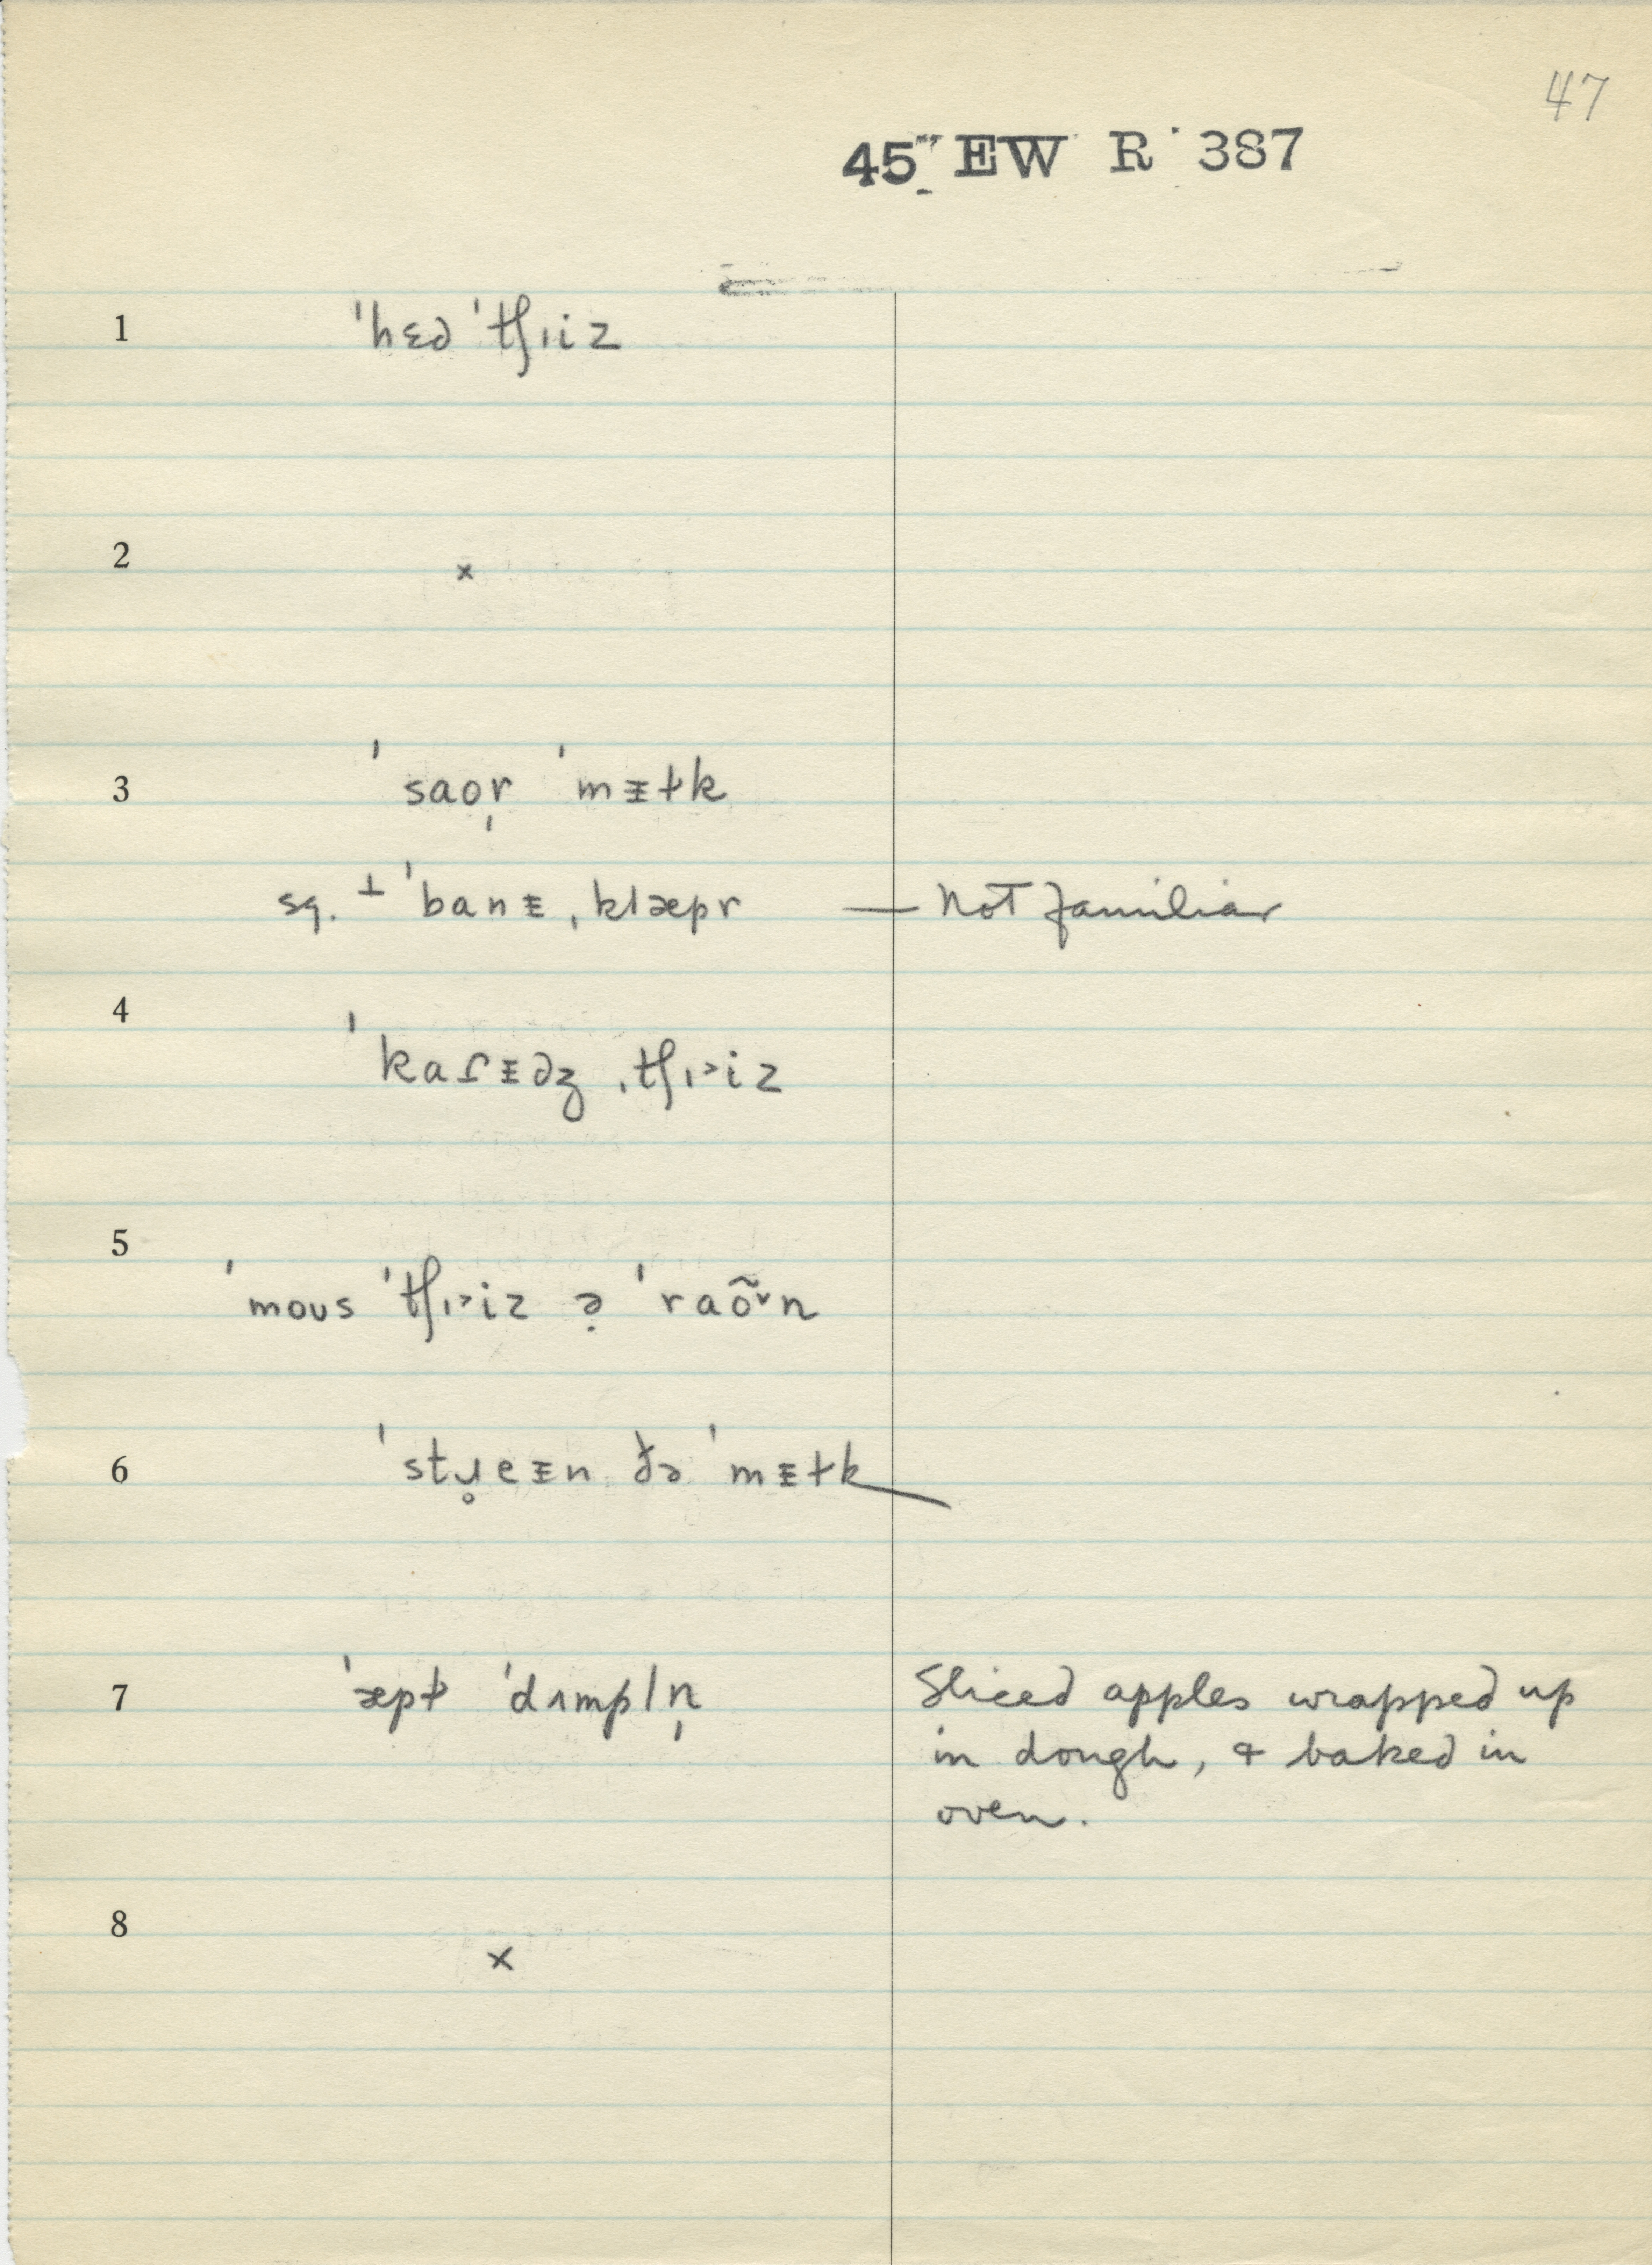 47
45 EW R 387
1 ˈhɛd ˈtʃɪiz
2 x
3 ˈsaor̩ ˈmɪɫk
sq. ⊥ ˈbanɪ ˌklæpr — not familiar
4 ˈkaɾɪdʒ ˌtʃɪ˃iz
5 ˈmoʊs ˈtʃɪ˃iz ə̣ ˈraõ˅n
6 ˈstɹ̥eɪn ðə ˈmɪɫk
7 ˈæpɫ ˈdʌmpln̩ Sliced apples wrapped up
in dough, & baked in
oven.
8 x